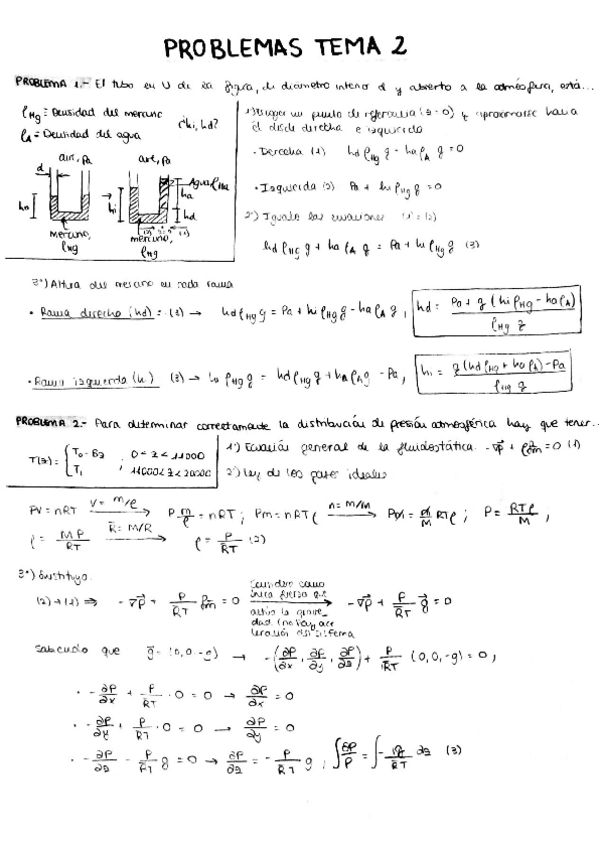 PROBLEMAS TEMA 2
PROBLEMA 1.- El tubo en U de la figura, de diámetro interior d y abierto a la atmósfera, está...
ρHg ≡ Densidad del mercurio
ρA ≡ Densidad del agua
¿hi, hd?
1º) Escoger un punto de referencia (z=0) y aproximarse hacia
él desde derecha e izquierda
· Derecha (1) hd ρHg g - ha ρA g = 0
· Izquierda (2) Pa + hi ρHg g = 0
2º) Igualo las ecuaciones (1) = (2)
hd ρHg g + ha ρA g = Pa + hi ρHg g (3)
d
aire, Pa
aire, Pa
Agua
ha
hd
h0
hi
mercurio,
ρHg
mercurio,
ρHg
3º) Altura del mercurio en cada rama
· Rama derecha (hd) = (3) → hd ρHg g = Pa + hi ρHg g - ha ρA g , hd = Pa + g (hi ρHg - ha ρA) / ρHg g
· Rama izquierda (hi) (3) → hi ρHg g = hd ρHg g + ha ρHg g - Pa, hi = g (hd ρHg + ha ρA) - Pa / ρHg g
PROBLEMA 2.- Para determinar correctamente la distribución de presión atmosférica hay que tener...
T(z) = { T0 - Bz , 0 < z < 11000
T1 , 11000 < z < 20000
1º) Ecuación general de la fluidostática. -∇P + ρ fm = 0 (1)
2º) Ley de los gases ideales
PV = nRT V = m/ρ → P m/ρ = nRT ; Pm = nRTρ n = m/M → Pm = m/M RTρ ; P = RTρ/M ,
ρ = MP/RT R̄ = M/R → ρ = P/R̄T (2)
3º) Sustituyo.
(2) → (1) ⇒ -∇P + P/R̄T fm = 0 Considero como única fuerza que actúa la gravedad (no hay aceleración del sistema → -∇P + P/R̄T g = 0
Sabiendo que g = (0,0,-g) → -(∂P/∂x, ∂P/∂y, ∂P/∂z) + P/R̄T (0,0,-g) = 0 ,
· -∂P/∂x + P/R̄T · 0 = 0 → ∂P/∂x = 0
· -∂P/∂y + P/R̄T · 0 = 0 → ∂P/∂y = 0
· -∂P/∂z - P/R̄T g = 0 → ∂P/∂z = - P/R̄T g ; ∫ ∂P/P = ∫ - g/R̄T ∂z (3)